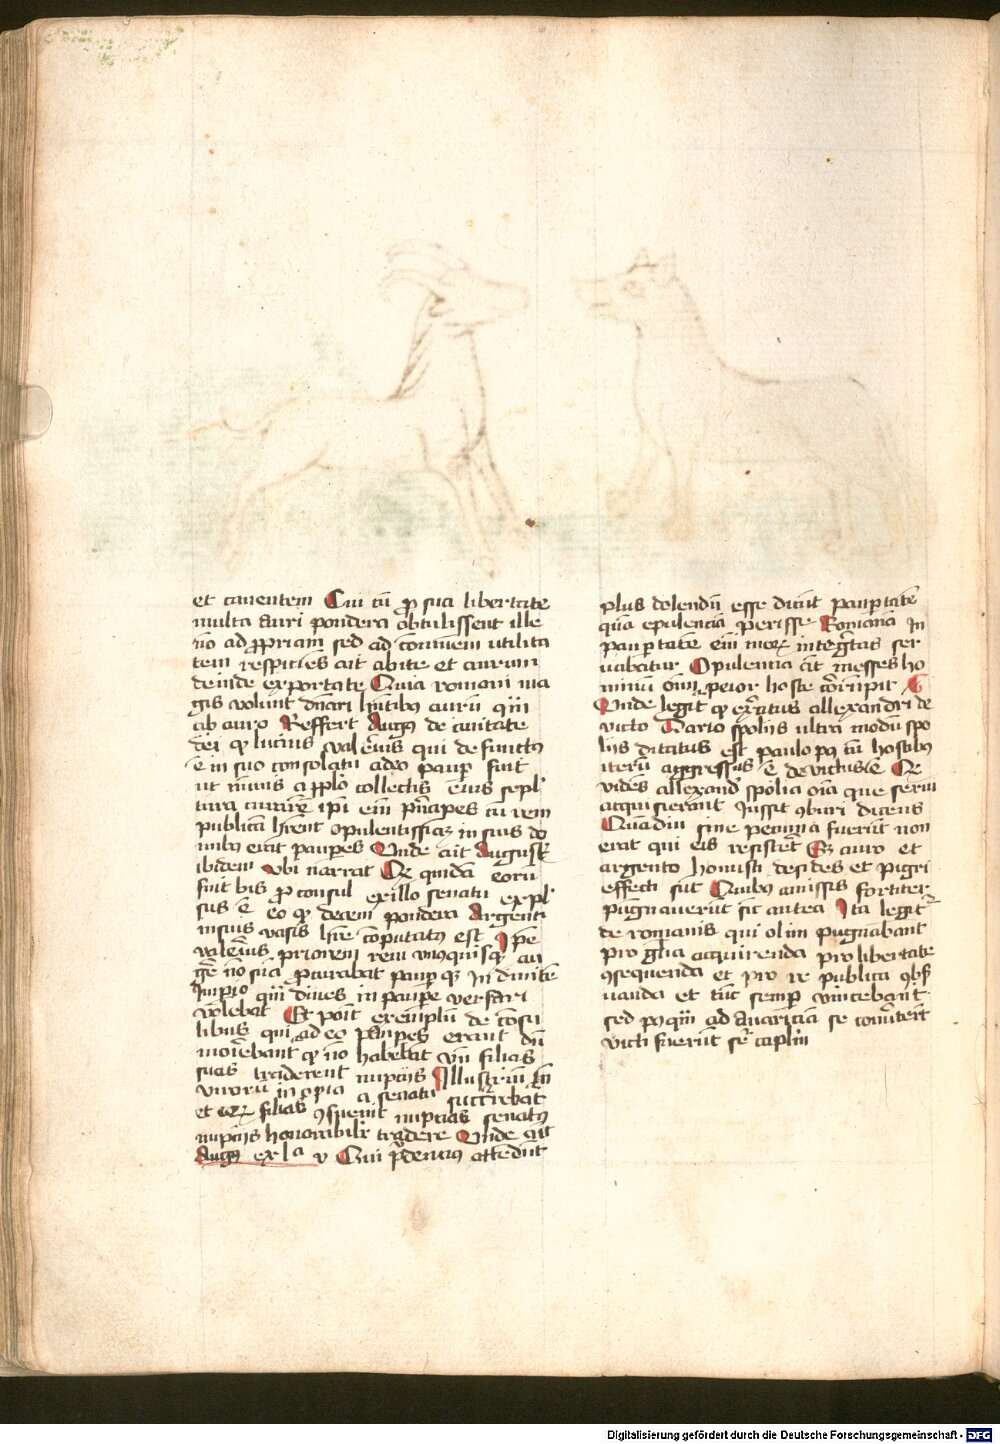 et cauentem Cui cū ꝓ sua libertate
multa auri pondera obtulissent ille
nō ad ꝓpriam sed ad cōmuem utilita
tem respiciēs ait abite et aurum
deinde exportate Quia romani ma
gis volunt dn̄ari hn̄tibꝰ aurū qm̄
ab auro Reffert Augꝰ de ciuitate
dei ꝙ lucius valeriꝰ qui de functꝰ
ē in suo consolatu adeo paup fuit
ut nūmis a pplō collectis eius sepl
tura
publicā hr̄ent opulentissimā in suis do
mibꝫ erāt pauꝑes Unde ait Augusti
ibidem vbi narrat Qꝫ quidā eorū
fuit bis ꝓ consul ex illo senatu expl
sus ē eo ꝙ decem pondera Argenti
in suis vasis hr̄e cōputatꝰ est Ipe
valeriꝰ priorem rem vnꝰquisqꝫ au
ge nō suā ꝓcurabat paup qꝫ In diuite
Imperio qm̄ diues in paupe versari
volebat Et poit exemplū de cōsu
libus qui ad eo paupes erant dū
mouebant ꝙ nō habebāt vn̄ filias
suas traderent nuptijs Illustriū
virorū inopia a senatu succurrebat
et filias nuptias senatꝰ
nuptijs honorabilr tradere Unde ait
Augꝰ ex lᵃ v Qui prudenciꝰ attēdūt
plus dolendū esse dicūt pauꝑtatē
quā epulencia perisse Romana In
pauꝑtate em̄ moꝝ integritas ser
uabatur Opulencia aūt messes ho
minū om̄i peior hoste corrupit
Unde legit ꝙ exercitus allexandri de
victo Dario spolijs ultra modū spo
lijs ditatus est paulo pꝰ cū hostibꝰ
iterū aggressus ē devictus ē Qꝫ
vidēs allexander spolia oīa que serui
acquisierant Iussit ꝯburi dicens
Quādiu sine pecunia fuerūt non
erat qui eis resisteret Sꝫ auro et
argento honusti desides et pigri
effecti sūt Quibꝰ amissis fortiter
pugnauerūt sic antea Ita legitr
de romanis qui olim pugnabant
pro gl̄ia acquirenda pro libertate
ꝯsequenda et pro re publica ꝯser
uanda et tūc semper vincebant
sed pꝰqm̄ ad auariciā se couerterūt
victi fuerūt
Digitalisierung gefördert durch die Deutsche Forschungsgemeinschaft - DFG